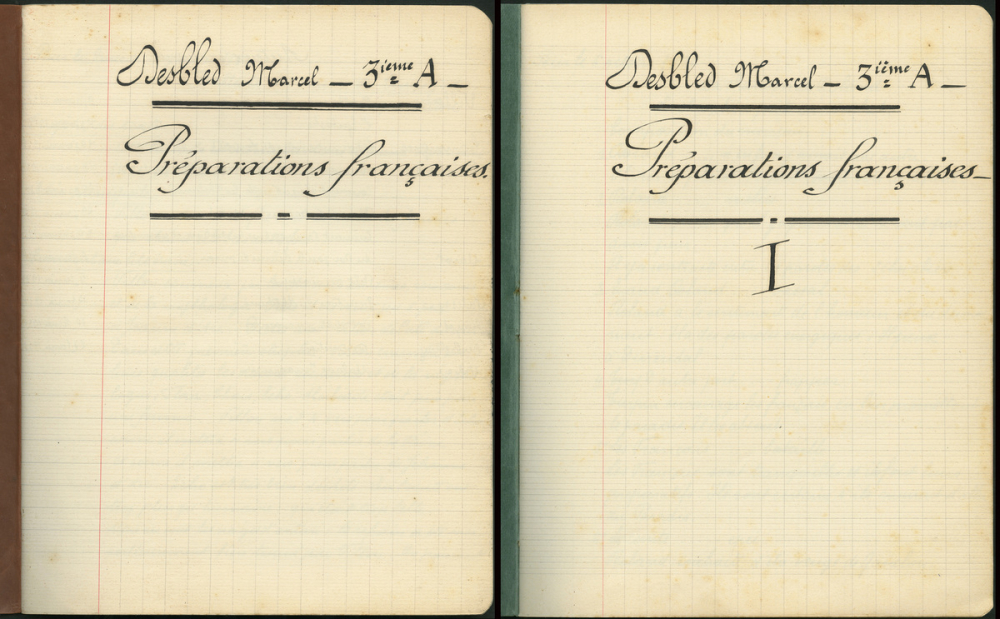 Desbled Marcel — 3ième A —
Préparations françaises.
Desbled Marcel — 3ième A —
Préparations françaises —
I